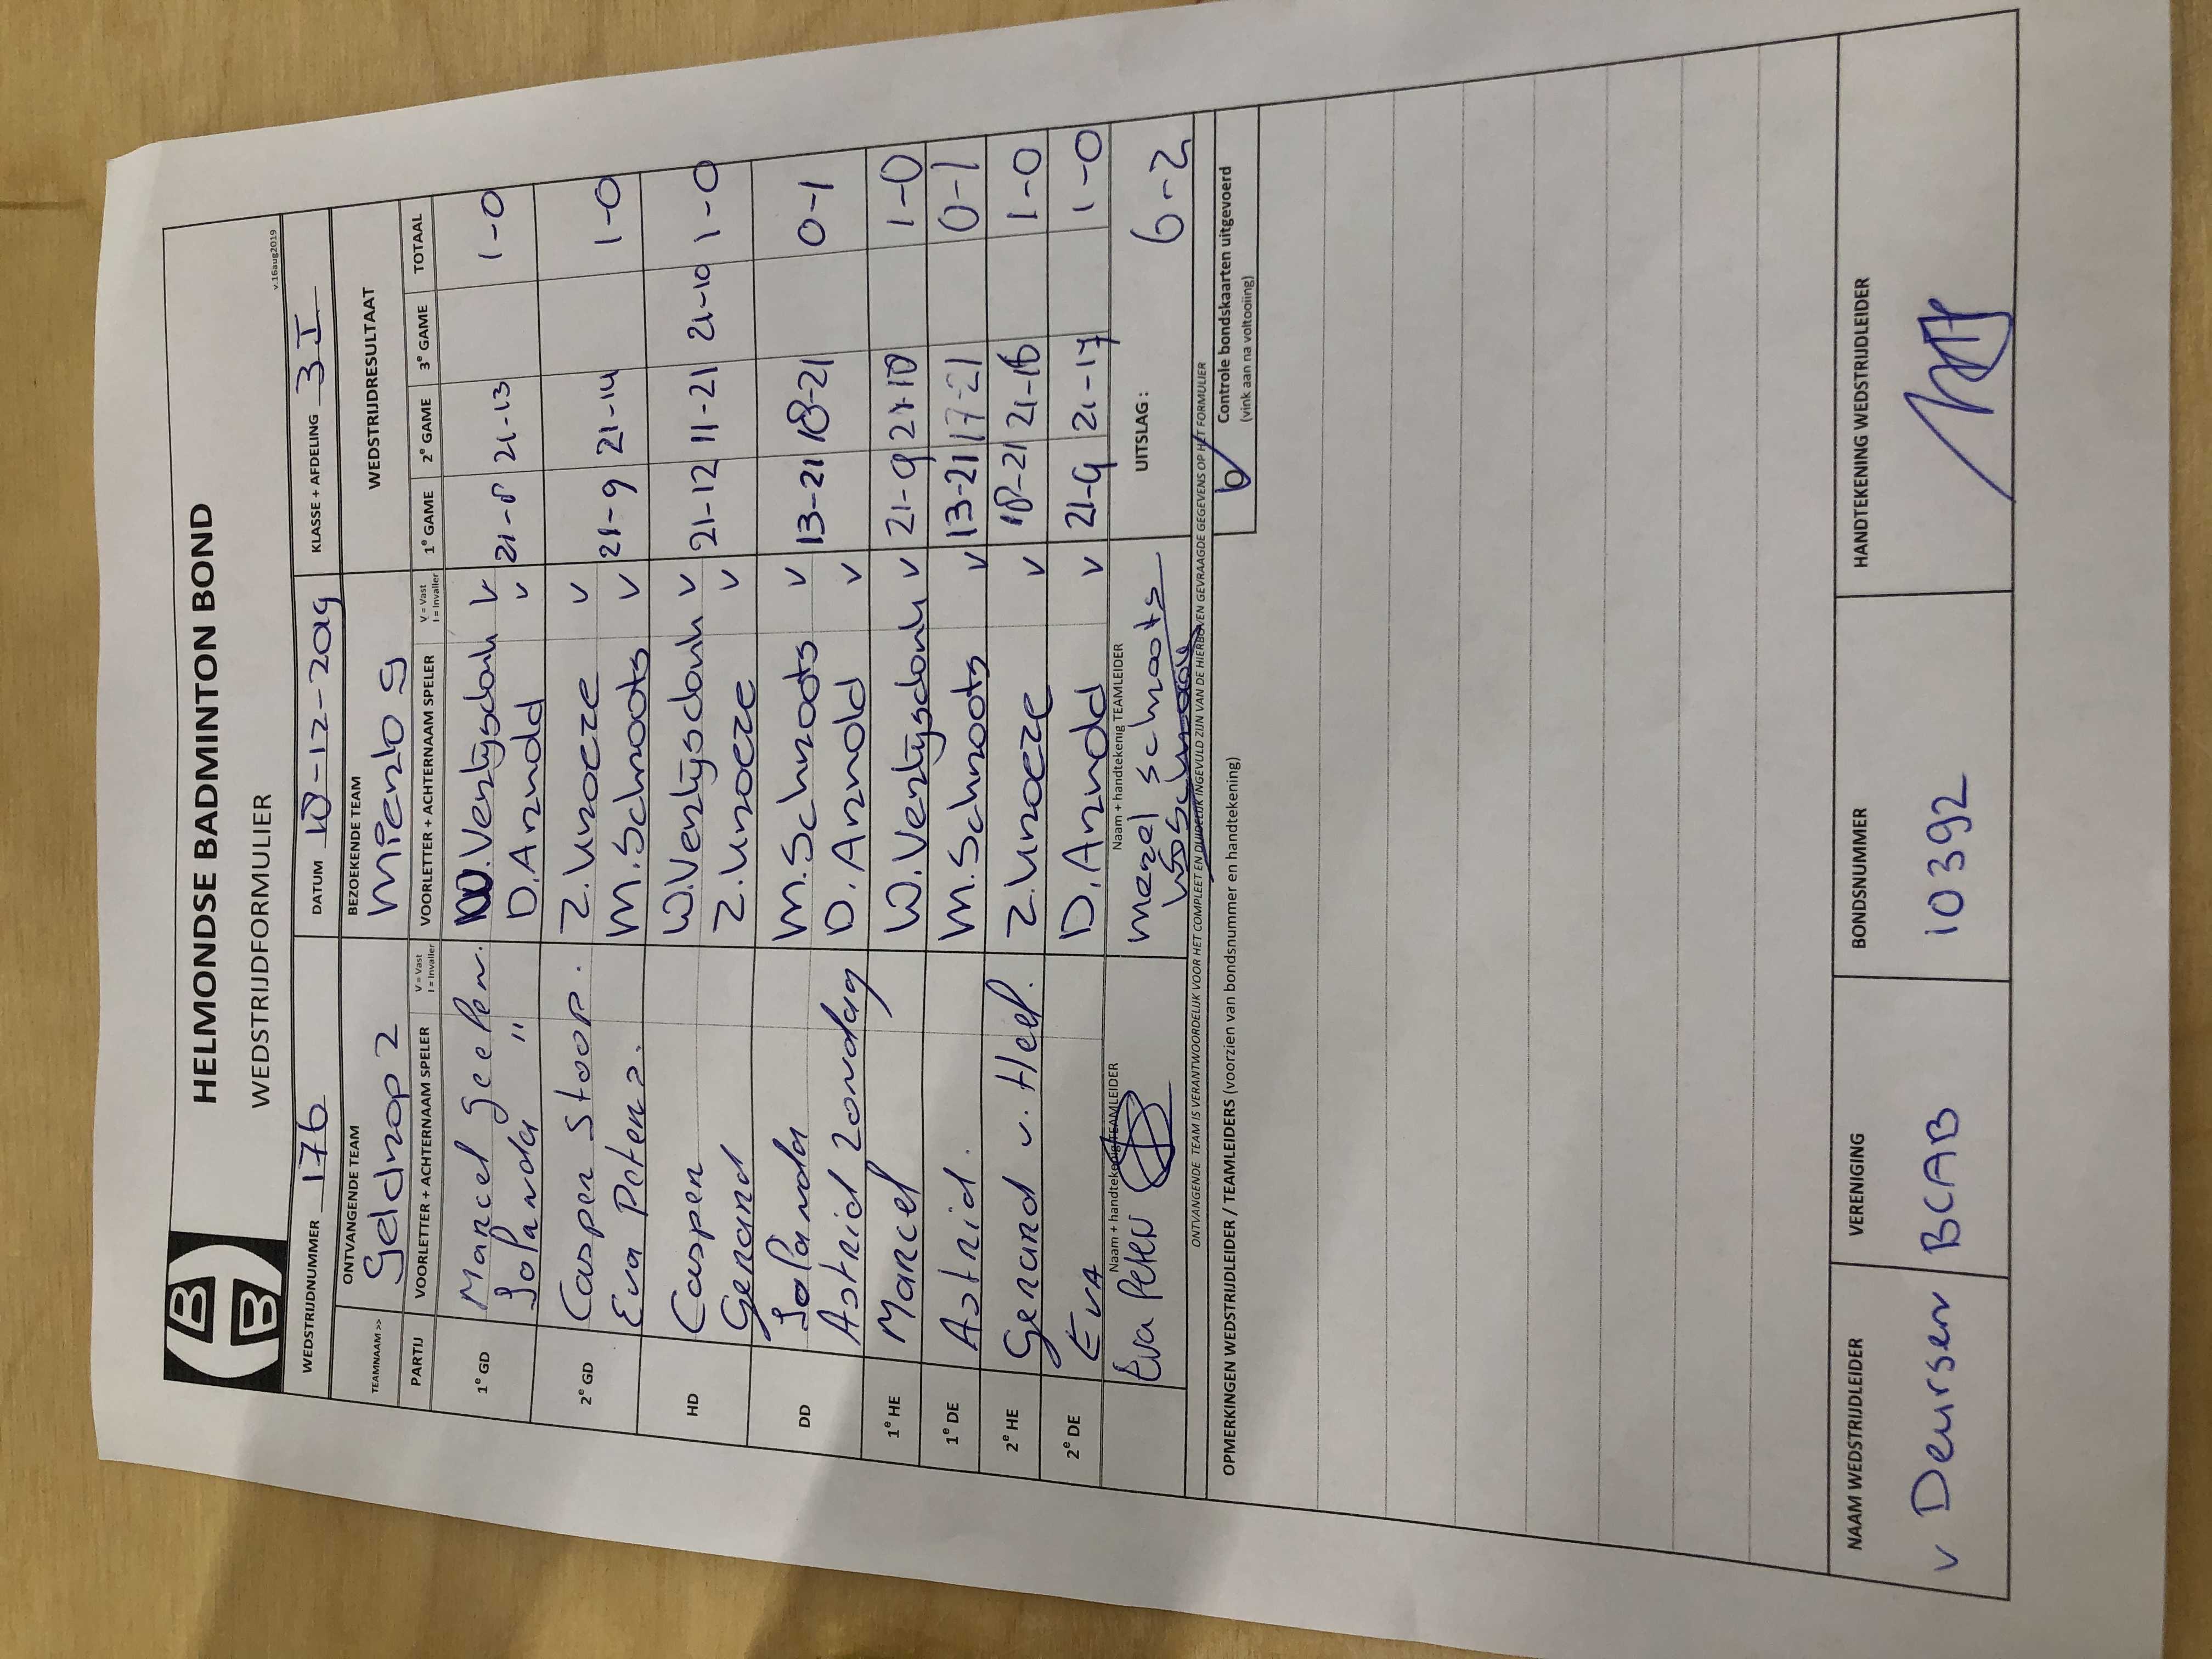 HB
BB
HELMONDSE BADMINTON BOND
WEDSTRIJDFORMULIER
v.16aug2019
WEDSTRIJDNUMMER 176 DATUM 10-12-2019 KLASSE + AFDELING 3 I
TEAMNAAM >> ONTVANGENDE TEAM BEZOEKENDE TEAM WEDSTRIJDRESULTAAT
Geldrop 2 Mierlo 9
PARTIJ VOORLETTER + ACHTERNAAM SPELER V = Vast I = Invaller VOORLETTER + ACHTERNAAM SPELER V = Vast I = Invaller 1e GAME 2e GAME 3e GAME TOTAAL
1e GD Marcel Geelen. W.Verlijsdonk V 21-8 21-13 1-0
Jolanda " D.Arnold V
2e GD Casper Stoop. Z.Knoeze V 21-9 21-14 1-0
Eva Peters. M.Schroots V
HD Casper W.Verlijsdonk V 21-12 11-21 21-10 1-0
Gerard Z.Knoeze V
DD Jolanda M.Schroots V 13-21 18-21 0-1
Astrid Zondag D.Arnold V
1e HE Marcel W.Verlijsdonk V 21-9 21-10 1-0
1e DE Astrid. M.Schroots V 13-21 17-21 0-1
2e HE Gerard v. Heel. Z.Knoeze V 18-21 21-16 1-0
2e DE EVA D.Arnold V 21-9 21-17 1-0
Naam + handtekening TEAMLEIDER Naam + handtekenig TEAMLEIDER UITSLAG : 6-2
Eva Peters merel schroots
ONTVANGENDE TEAM IS VERANTWOORDELIJK VOOR HET COMPLEET EN DUIDELIJK INGEVULD ZIJN VAN DE HIERBOVEN GEVRAAGDE GEGEVENS OP HET FORMULIER
OPMERKINGEN WEDSTRIJDLEIDER / TEAMLEIDERS (voorzien van bondsnummer en handtekening)
Controle bondskaarten uitgevoerd
(vink aan na voltooiing)
NAAM WEDSTRIJDLEIDER VERENIGING BONDSNUMMER HANDTEKENING WEDSTRIJDLEIDER
v Deursen BCAB 10392